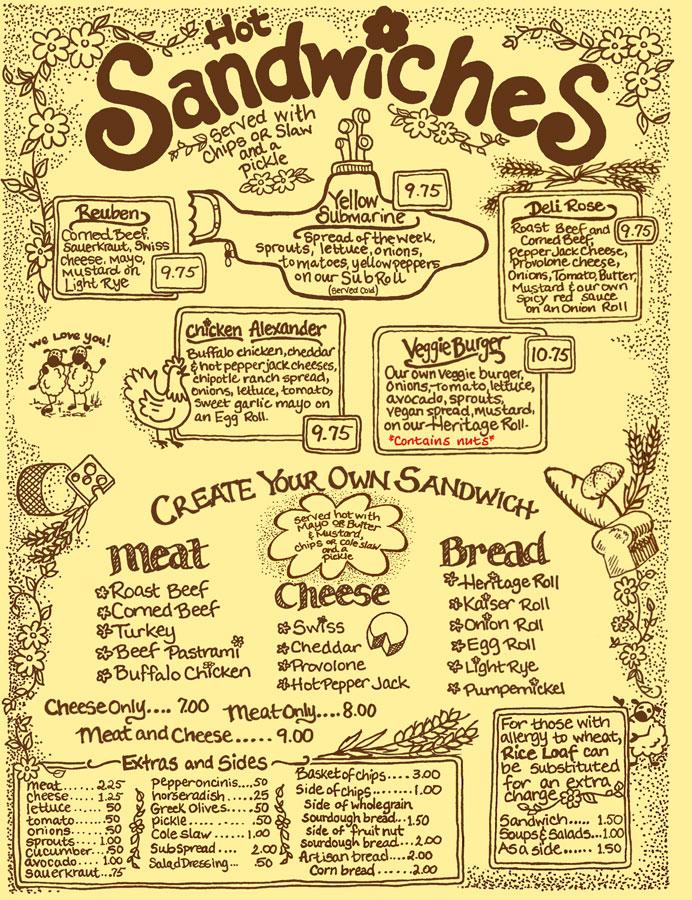 Hot
Sandwiches
served with
chips or slaw
and a
pickle
Yellow
Submarine
9.75
Spread of the week,
sprouts, lettuce, onions,
tomatoes, yellow peppers
on our Sub Roll
(served cold)
Reuben
Corned Beef,
Sauerkraut, Swiss
Cheese, Mayo,
Mustard on
Light Rye
9.75
Deli Rose
Roast Beef and
Corned Beef,
Pepper Jack Cheese,
Provolone cheese,
Onions, Tomato, Butter,
Mustard & our own
spicy red sauce
on an Onion Roll
9.75
We Love You!
Chicken Alexander
Buffalo chicken, cheddar
& hot pepper jack cheeses,
chipotle ranch spread,
onions, lettuce, tomato,
sweet garlic mayo on
an Egg Roll.
9.75
Veggie Burger
10.75
Our own veggie burger,
onions, tomato, lettuce,
avocado, sprouts,
vegan spread, mustard,
on our Heritage Roll.
*Contains nuts*
Create Your Own Sandwich
Served hot with
Mayo or Butter
& Mustard,
chips or cole slaw
and a
pickle
Meat
Roast Beef
Corned Beef
Turkey
Beef Pastrami
Buffalo Chicken
Cheese
Swiss
Cheddar
Provolone
Hot Pepper Jack
Bread
Heritage Roll
Kaiser Roll
Onion Roll
Egg Roll
Light Rye
Pumpernickel
Cheese Only.... 7.00 Meat Only....8.00
Meat and Cheese..... 9.00
For those with
allergy to wheat,
Rice Loaf can
be substituted
for an extra
charge
Sandwich..... 1.50
Soups & Salads...1.00
As a side...... 1.50
Extras and Sides
meat........ 2.25
cheese..... 1.25
lettuce..... .50
tomato..... .50
onions..... .50
sprouts.... 1.00
cucumber...50
avocado.... 1.00
sauerkraut...75
Pepperoncinis....50
horseradish.... .25
Greek Olives.... .50
pickle.......... .50
Cole slaw.... 1.00
Sub Spread.... 2.00
Salad Dressing... .50
Basket of chips.... 3.00
Side of chips...... 1.00
Side of wholegrain
sourdough bread...1.50
side of fruit nut
sourdough bread...2.00
Artisan bread....2.00
Corn bread......2.00